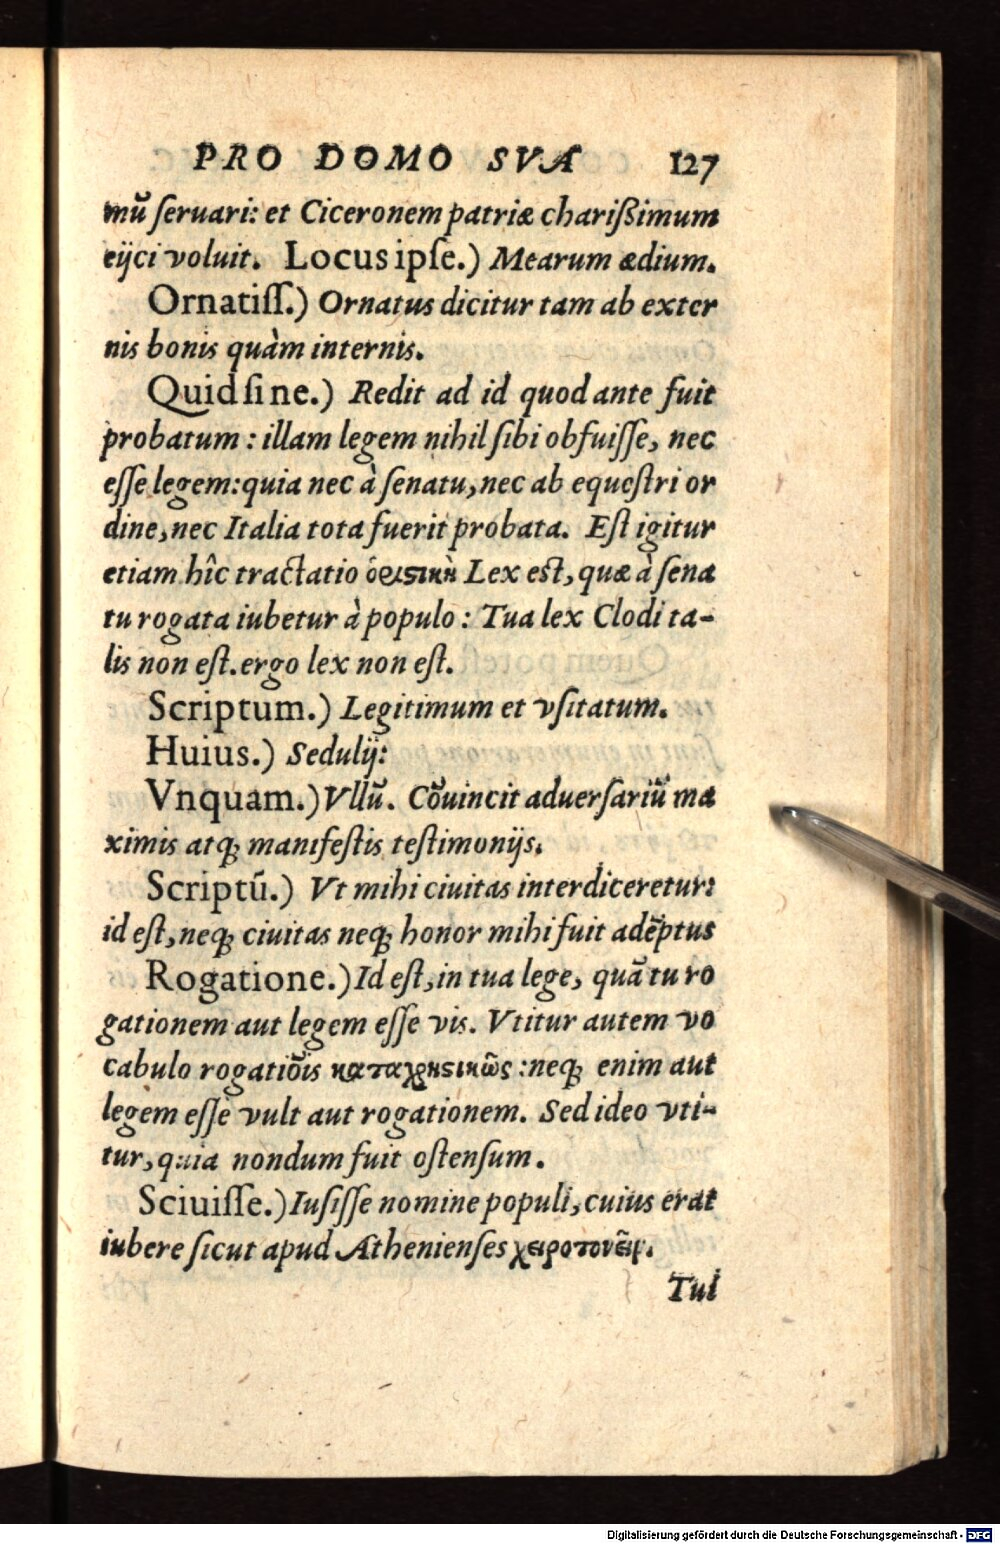 PRO DOMO SVA 127
mū ſeruari: et Ciceronem patriæ charißimum
eijci voluit. Locus ipſe.) Mearum ædium.
Ornatiſſ.) Ornatus dicitur tam ab exter
nis bonis quàm internis.
Quid ſine.) Redit ad id quod ante fuit
probatum : illam legem nihil ſibi obfuiſſe, nec
eſſe legem: quia nec à ſenatu, nec ab equeſtri or
dine, nec Italia tota fuerit probata. Eſt igitur
etiam hîc tractatio ὁριϛικὴ Lex est, quæ à ſena
tu rogata iubetur à populo : Tua lex Clodi ta-
lis non eſt. ergo lex non eſt.
Scriptum.) Legitimum et vſitatum.
Huius.) Sedulij:
Vnquam.) Vllū. Cōuincit aduerſariū ma
ximis atq; manifeſtis teſtimonijs.
Scriptū.) Vt mihi ciuitas interdiceretur:
id eſt, neq; ciuitas neq; honor mihi fuit adēptus
Rogatione.) Id eſt, in tua lege, quā tu ro
gationem aut legem eſſe vis. Vtitur autem vo
cabulo rogatiōis καταχρηϛικῶς : neq; enim aut
legem eſſe vult aut rogationem. Sed ideo vti-
tur, quia nondum fuit oſtenſum.
Sciuiſſe.) Iuſiſſe nomine populi, cuius erat
iubere ſicut apud Athenienſes χειροτονεῖν.
Tul
Digitalisierung gefördert durch die Deutsche Forschungsgemeinschaft - DFG